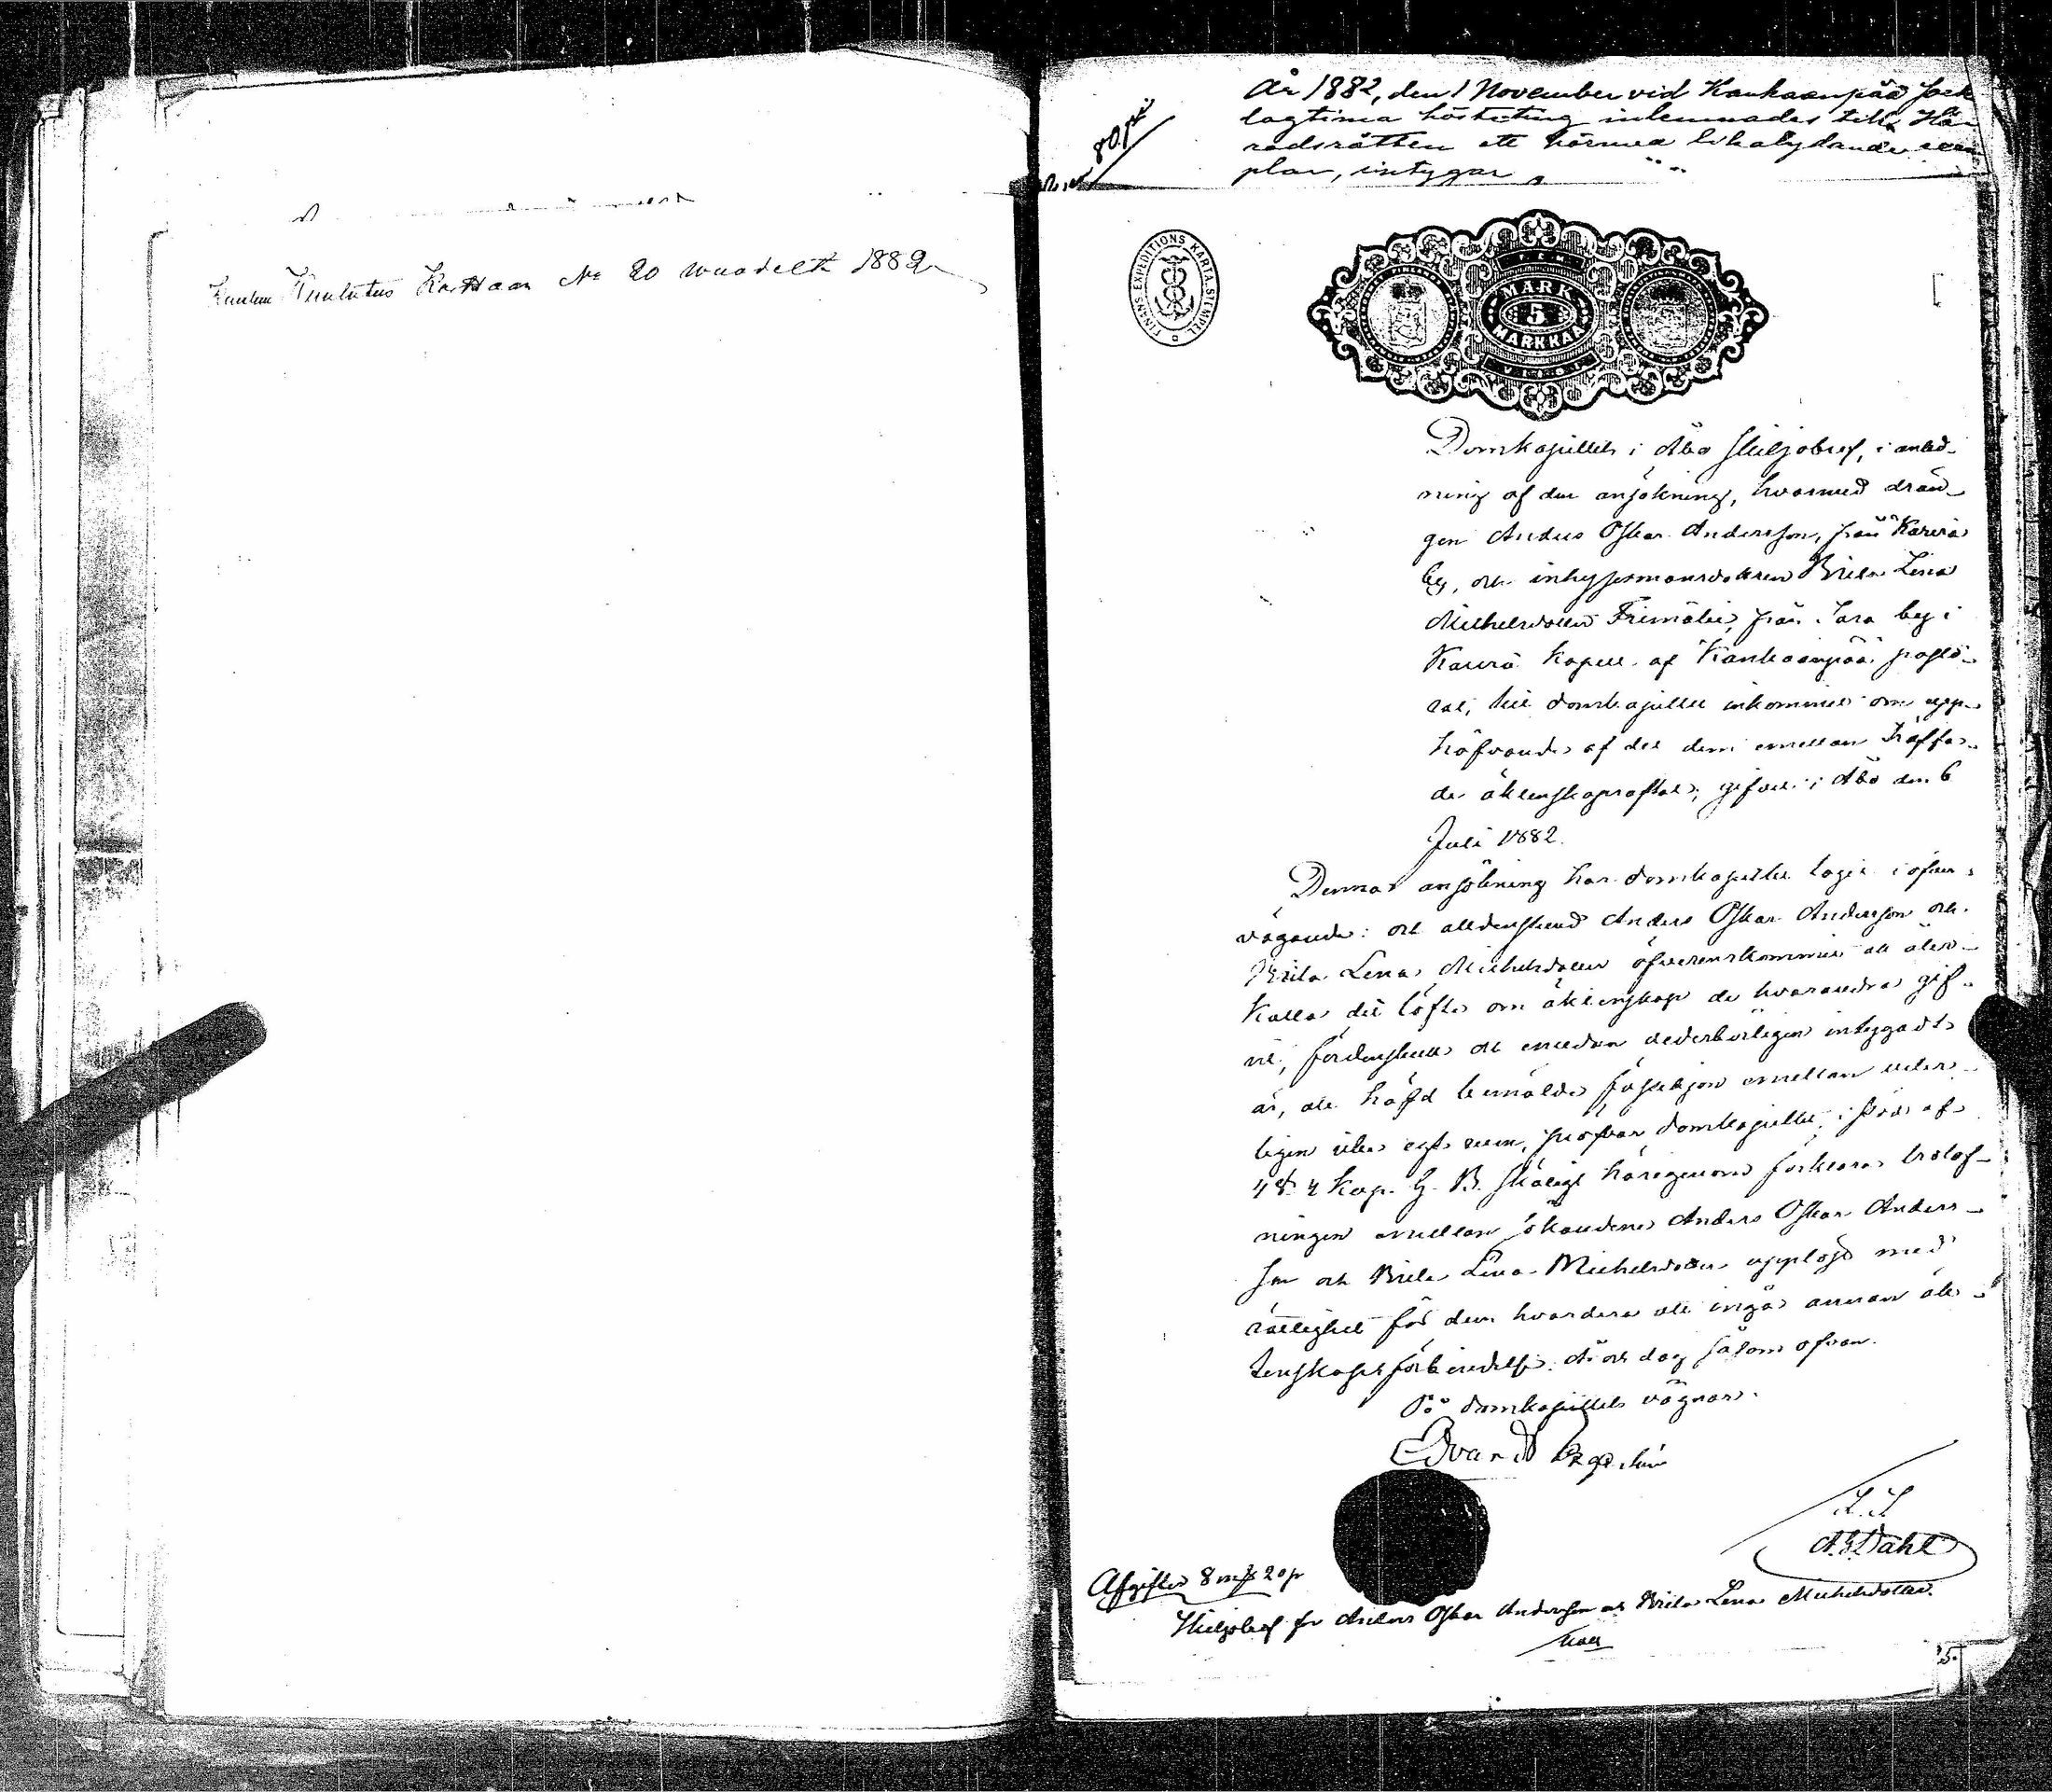 Kuuluu Kuulutus Karttaan No 20 vuodelta 1882
År 1882, den 1 November vid Kankaanpää sock
lagtima hösteting inlemnades till Hä
radsrätten ett härmed likalydande exem
plar, intygar
80 p
FINANS EXPEDITIONS KARTA.STEMPEL
FEM
MARK
5
MARKKAA
VIISI
Domkapitlets i Åbo skiljobref, i anled-
ning af den ansökning, hvarmed drän-
gen Anders Oskar Andersson, från Karvia
by, och inhysesmansdottren Brita Lena
Michelsdotter Frimälie, från Sara by i
Karvia kapell af Kankaanpää pasto-
rat, till domkapitlet inkommit om upp-
häfvande af det dem emellan träffa-
de äktenskapsaftal; gifvet i Åbo den 6
Juli 1882.
Denna ansökning har domkapitlet tagit i öfver-
vägande: och alldenstund Anders Oskar Andersson och
Brita Lena Michelsdotter öfverenskommit att åter-
kalla det löfte om äktenskap de hvarandra gif-
vit, fördenskull och emedan vederbörligen intygadt
är, att häfd bemälde fästehjon emellan veter-
ligen icke egt rum, pröfvar domkapitlet, i stöd af
4 § 4 kap. G. B. skäligt härigenom förklara trolof-
ningen emellan sökandene Anders Oskar Anders-
son och Brita Lena Michelsdotter upplöst med
rättighet för dem hvardera att ingå annan äk-
tenskapsförbindelse. År och dag såsom ofvan.
På domkapitlets vägnar:
Edvard
A. E. Dahl
Afgifter 8 mk 20 p
Skiljobref för Anders Oskar Andersson och Brita Lena Michelsdotter.
5.